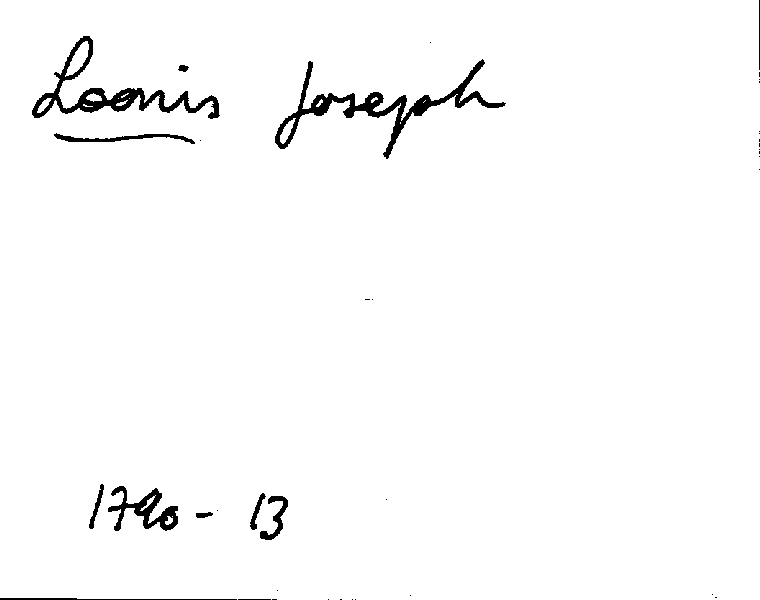 Loonis Joseph
1790 - 13